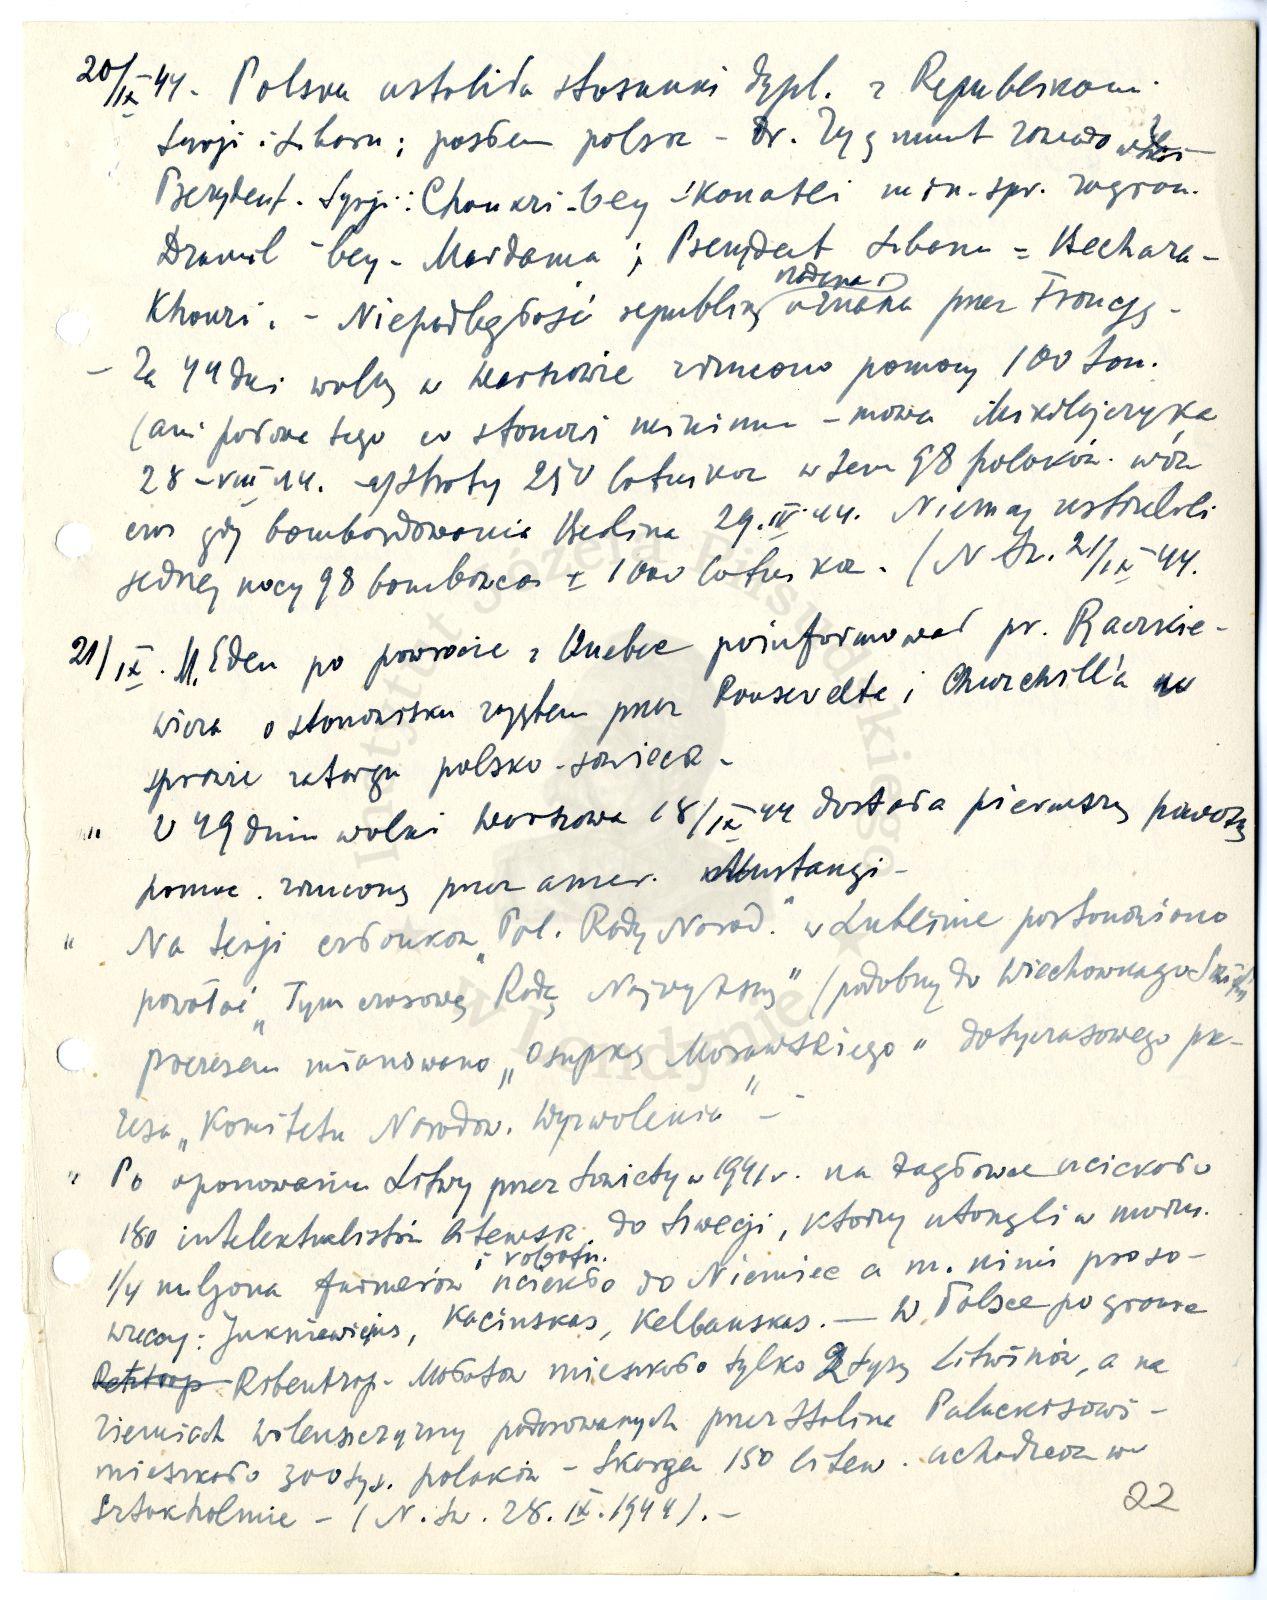 20/IX 44. Polska ustaliła stosunki dypl. z Republikami
Syrji i Libanu; posłem polsk - dr. Zygmunt Zawadowski
Prezydent. Syrji: Choukri-bey-Konatli min. spr. zagran.
Dżamil-bey-Mardama; Prezydent Libanu = Bechara-
Khouri. - Niepodległość republiky nadana i uznana przez Francyę -
- Za 44 dni walky w Warszawie zrzucono pomocy 100 ton.
(ani połowa tego co stanowi minimum - mowa Mikołajczyka
28-VIII 44. - straty 250 lotnikow w tem 98 polaków. wów
czas gdy bombardowania Berlina 29.IV.44. Niemcy zestrzelili
jednej nocy 98 bombowców ± 1000 lotników. (N Św. 21/IX 44.
21/IX. M. Eden po powrocie z Quebec poinformował pr. Raczkie-
wicza o stanowisku zajętem przez Roosevelta i Churchill'a w
sprawie zatargu polsko-sowieck -
" W 49 dniu walki Warszawa 18/IX 44 dostała pierwszy poważny
pomoc. zrzucony przez amer. Mustangi -
" Na sesji członków "Pol. Rady Narod." w Lublinie postanowiono
powołać "Tymczasową Radę Najwyższy" (podobny do Wierchownago
prezesem mianowano "Osupky Morawskiego" dotyczasowego pre-
zesa "Komitetu Narodow. Wyzwolenia" -
" Po opanowaniu Litwy przez Sowiety w 1941 r. na żaglówce uciekało
180 intelektualistów litewsk. do Szwecji, ktorzy utonęli w morzu.
1/4 miljona farmerów i robotn. uciekło do Niemiec a m. nimi praco-
wnicy: Jukniewiczius, Kacinskas, Kelbauskas. - W Polsce po granice
Ribentrop - Mołotow mieszkało tylko 2 tysy Litwinów, a na
ziemiach Wilenszczyzny podarowanych przez Stalina Paluckisowi -
mieszkało 300 tys. polaków - Skarga 150 litew. uchodzców w
Sztokholmie - (N. Św. 28.IX.1944). -
22
Instytut Józefa Piłsudskiego
w Londynie